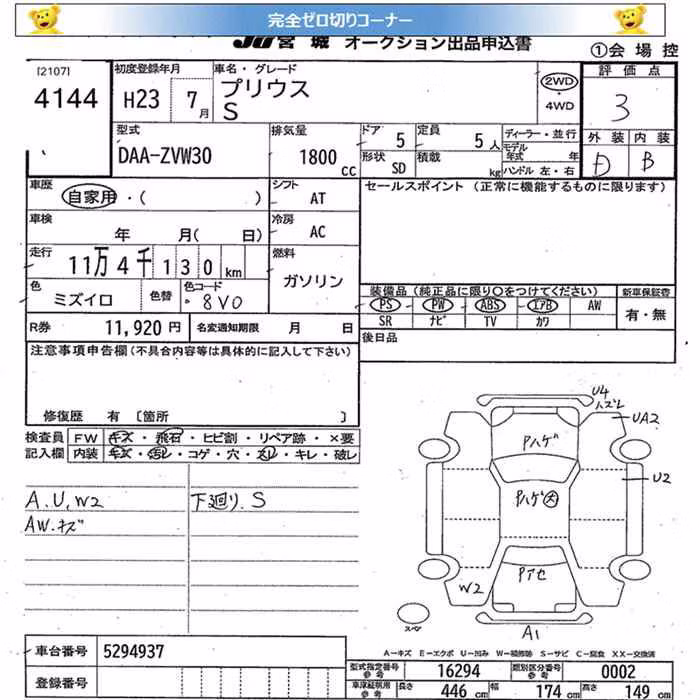 完全ゼロ切りコーナー
JU宮城 オークション出品申込書
①会場控
[2107]
4144
初度登録年月
H23 7月
車名・グレード
プリウス
S
2WD
・
4WD
評価点
3
外装 内装
D B
型式
DAA-ZVW30
排気量
1800cc
ドア 5
定員 5人
形状 SD
積載 kg
ディーラー・並行
モデル
年式 年
ハンドル 左・右
車歴
自家用・( )
シフト
AT
セールスポイント (正常に機能するものに限ります)
車検
年 月( 日)
冷房
AC
走行
11万4千130km
燃料
ガソリン
色
ミズイロ
色替
色コード
8V0
装備品 (純正品に限り○をつけてください)
PS PW ABS エアB AW
SR ナビ TV カワ
新車保証書
有・無
R券 11,920円
名変通知期限 月 日
後日品
注意事項申告欄(不具合内容等は具体的に記入して下さい)
修復歴 有 〔箇所 〕
検査員
記入欄
FW キズ・飛石・ヒビ割・リペア跡・×要
内装 キズ・汚レ・コゲ・穴・スレ・キレ・破レ
A.U.W2
AW.キズ
下廻り.S
U4
ハズレ
UA2
Pハゲ
U2
Pハゲ大
Pアセ
W2
スペア
A1
A−キズ E−エクボ U−凹み W−補修跡 S−サビ C−腐食 XX−交換済
車台番号 5294937
登録番号
型式指定番号
参考
16294
類別区分番号
参考
0002
車庫証明用
参考
長さ 446cm
幅 174cm
高さ 149cm